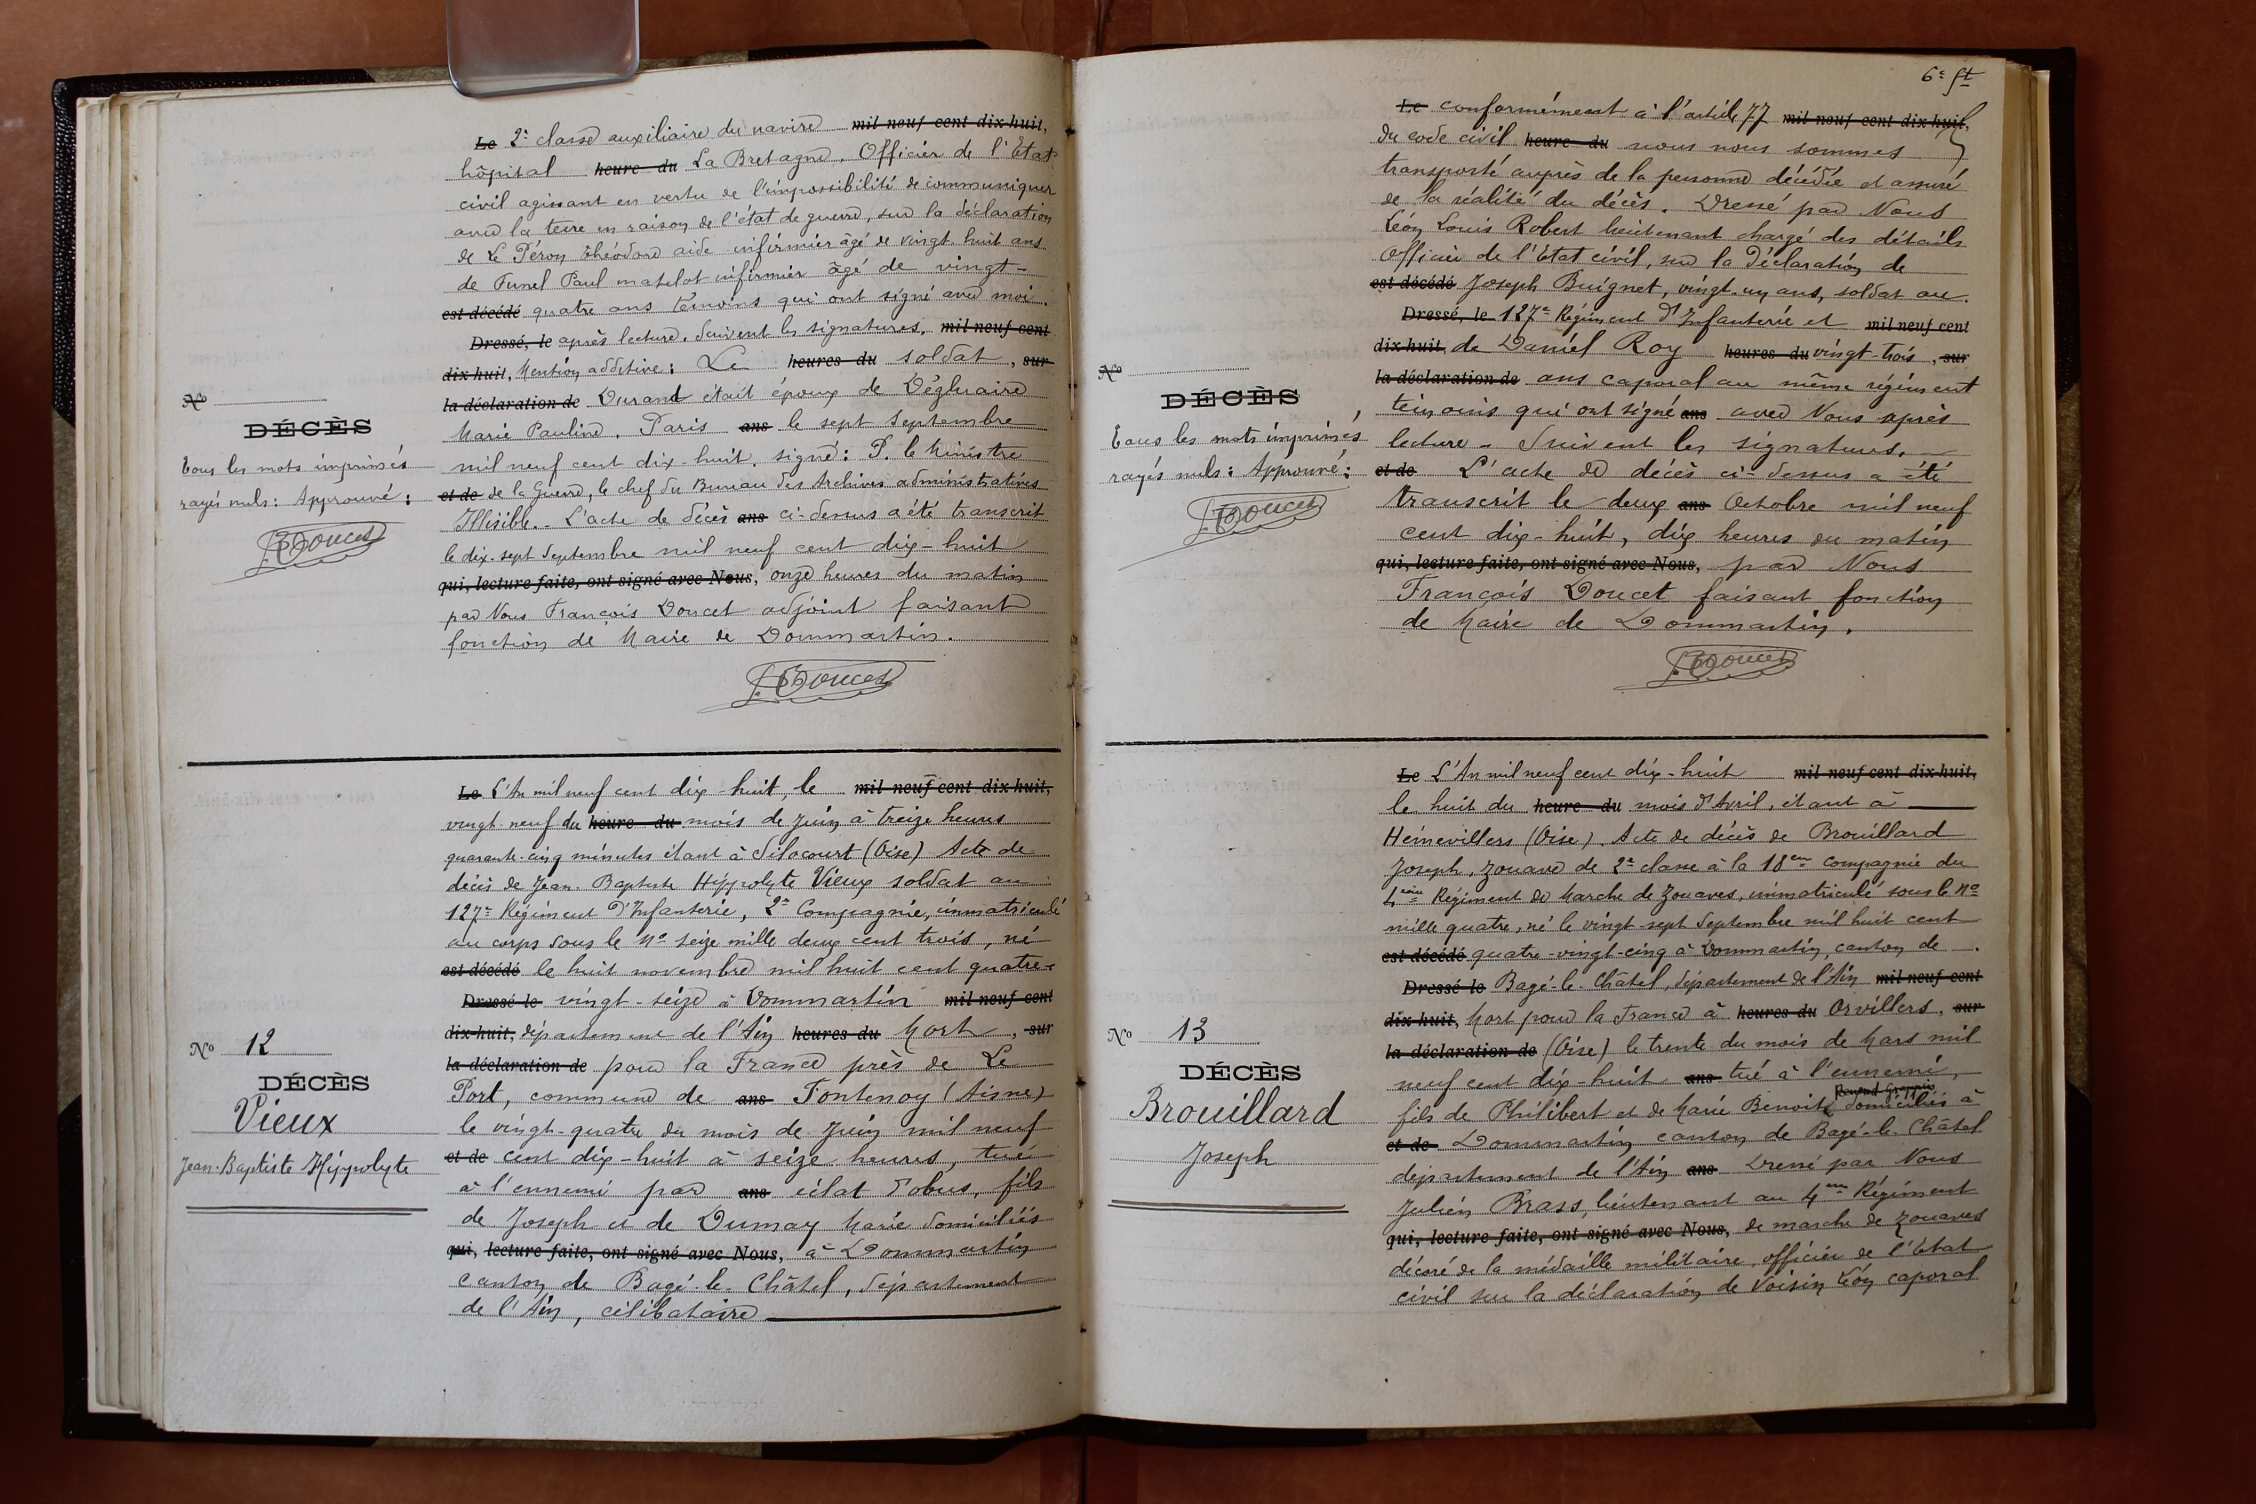 Le 2e classe auxiliaire du navire mil neuf cent dix-huit,
hôpital heure du La Bretagne. Officier de l'Etat
civil agissant en vertu de l'impossibilité de communiquer
avec la terre en raison de l'état de guerre, sur la déclaration
de Le Péron Théodore aide infirmier âgé de vingt-huit ans
de Funel Paul matelot infirmier âgé de vingt-
est décédé quatre ans témoins qui ont signé avec moi.
Dressé, le après lecture. Suivent les signatures. mil neuf cent
dix-huit, Mention additive: Le heures du soldat, sur
la déclaration de Durand était époux de Déglnaire
Marie Pauline. Paris ans le sept Septembre
mil neuf cent dix-huit. signé: P. le Ministre
et de de la Guerre, le chef du Bureau des Archives administratives
Illisible. - L'acte de décès ans ci-dessus a été transcrit
le dix-sept Septembre mil neuf cent dix-huit
qui, lecture faite, ont signé avec Nous, onze heures du matin
par Nous François Doucet adjoint faisant
fonction de Maire de Dommartin.
F. Doucet
No
DÉCÈS
Tous les mots imprimés
rayés nuls: Approuvé:
F. Doucet
Le L'An mil neuf cent dix-huit, le mil neuf cent dix-huit,
vingt-neuf du heure du mois de Juin à treize heures
quarante-cinq minutes étant à Silocourt (Oise) Acte de
décès de Jean-Baptiste Hippolyte Vieux soldat au
127e Régiment d'Infanterie, 2e Compagnie, immatriculé
au corps sous le No seize mille deux cent trois, né
est décédé le huit novembre mil huit cent quatre-
Dressé le vingt-seize à Dommartin mil neuf cent
dix-huit, département de l'Ain heures du Mort, sur
la déclaration de pour la France près de Le
Port, commune de ans Fontenoy (Aisne)
le vingt-quatre du mois de Juin mil neuf
et de cent dix-huit à seize heures, tué
à l'ennemi par ans éclat d'obus, fils
de Joseph et de Dumay Marie domiciliés
qui, lecture faite, ont signé avec Nous, à Dommartin
canton de Bagé-le-Châtel, département
de l'Ain, célibataire
No 12
DÉCÈS
Vieux
Jean-Baptiste Hippolyte
6e ft
Le conformément à l'article 77 mil neuf cent dix-huit,
du code civil heure du nous nous sommes
transporté auprès de la personne décédée et assuré
de la réalité du décès. Dressé par Nous
Léon Louis Robert lieutenant chargé des détails
Officier de l'Etat civil, sur la déclaration de
est décédé Joseph Buignet, vingt-un ans, soldat au.
Dressé, le 127e Régiment d'Infanterie et mil neuf cent
dix-huit, de Daniel Roy heures du vingt-trois, sur
la déclaration de ans caporal au même régiment
témoins qui ont signé ans avec Nous après
lecture - Suivent les signatures.
et de L'acte de décès ci-dessus a été
transcrit le deux ans Octobre mil neuf
cent dix-huit, dix heures du matin
qui, lecture faite, ont signé avec Nous, par Nous
François Doucet faisant fonction
de Maire de Dommartin.
F. Doucet
No
DÉCÈS
Tous les mots imprimés
rayés nuls: Approuvé:
F. Doucet
Le L'An mil neuf cent dix-huit mil neuf cent dix-huit,
le huit du heure du mois d'Avril, étant à
Heinevillers (Oise). Acte de décès de Brouillard
Joseph, Zouave de 2e classe à la 18eme Compagnie du
4eme Régiment de Marche de Zouaves, immatriculé sous le No
mille quatre, né le vingt-sept Septembre mil huit cent
est décédé quatre-vingt-cinq à Dommartin, canton de
Dressé le Bagé-le-Châtel, département de l'Ain mil neuf cent
dix-huit, Mort pour la France à heures du Orvillers, sur
la déclaration de (Oise) le trente du mois de Mars mil
neuf cent dix-huit ans tué à l'ennemi,
fils de Philibert et de Marie Benoite Renaud Greppin domiciliés à
et de Dommartin canton de Bagé-le-Châtel
département de l'Ain ans Dressé par Nous
Julien Brass, lieutenant au 4eme Régiment
qui, lecture faite, ont signé avec Nous, de marche de zouaves
décoré de la médaille militaire, officier de l'Etat
civil sur la déclaration de Voisin Léon caporal
No 13
DÉCÈS
Brouillard
Joseph